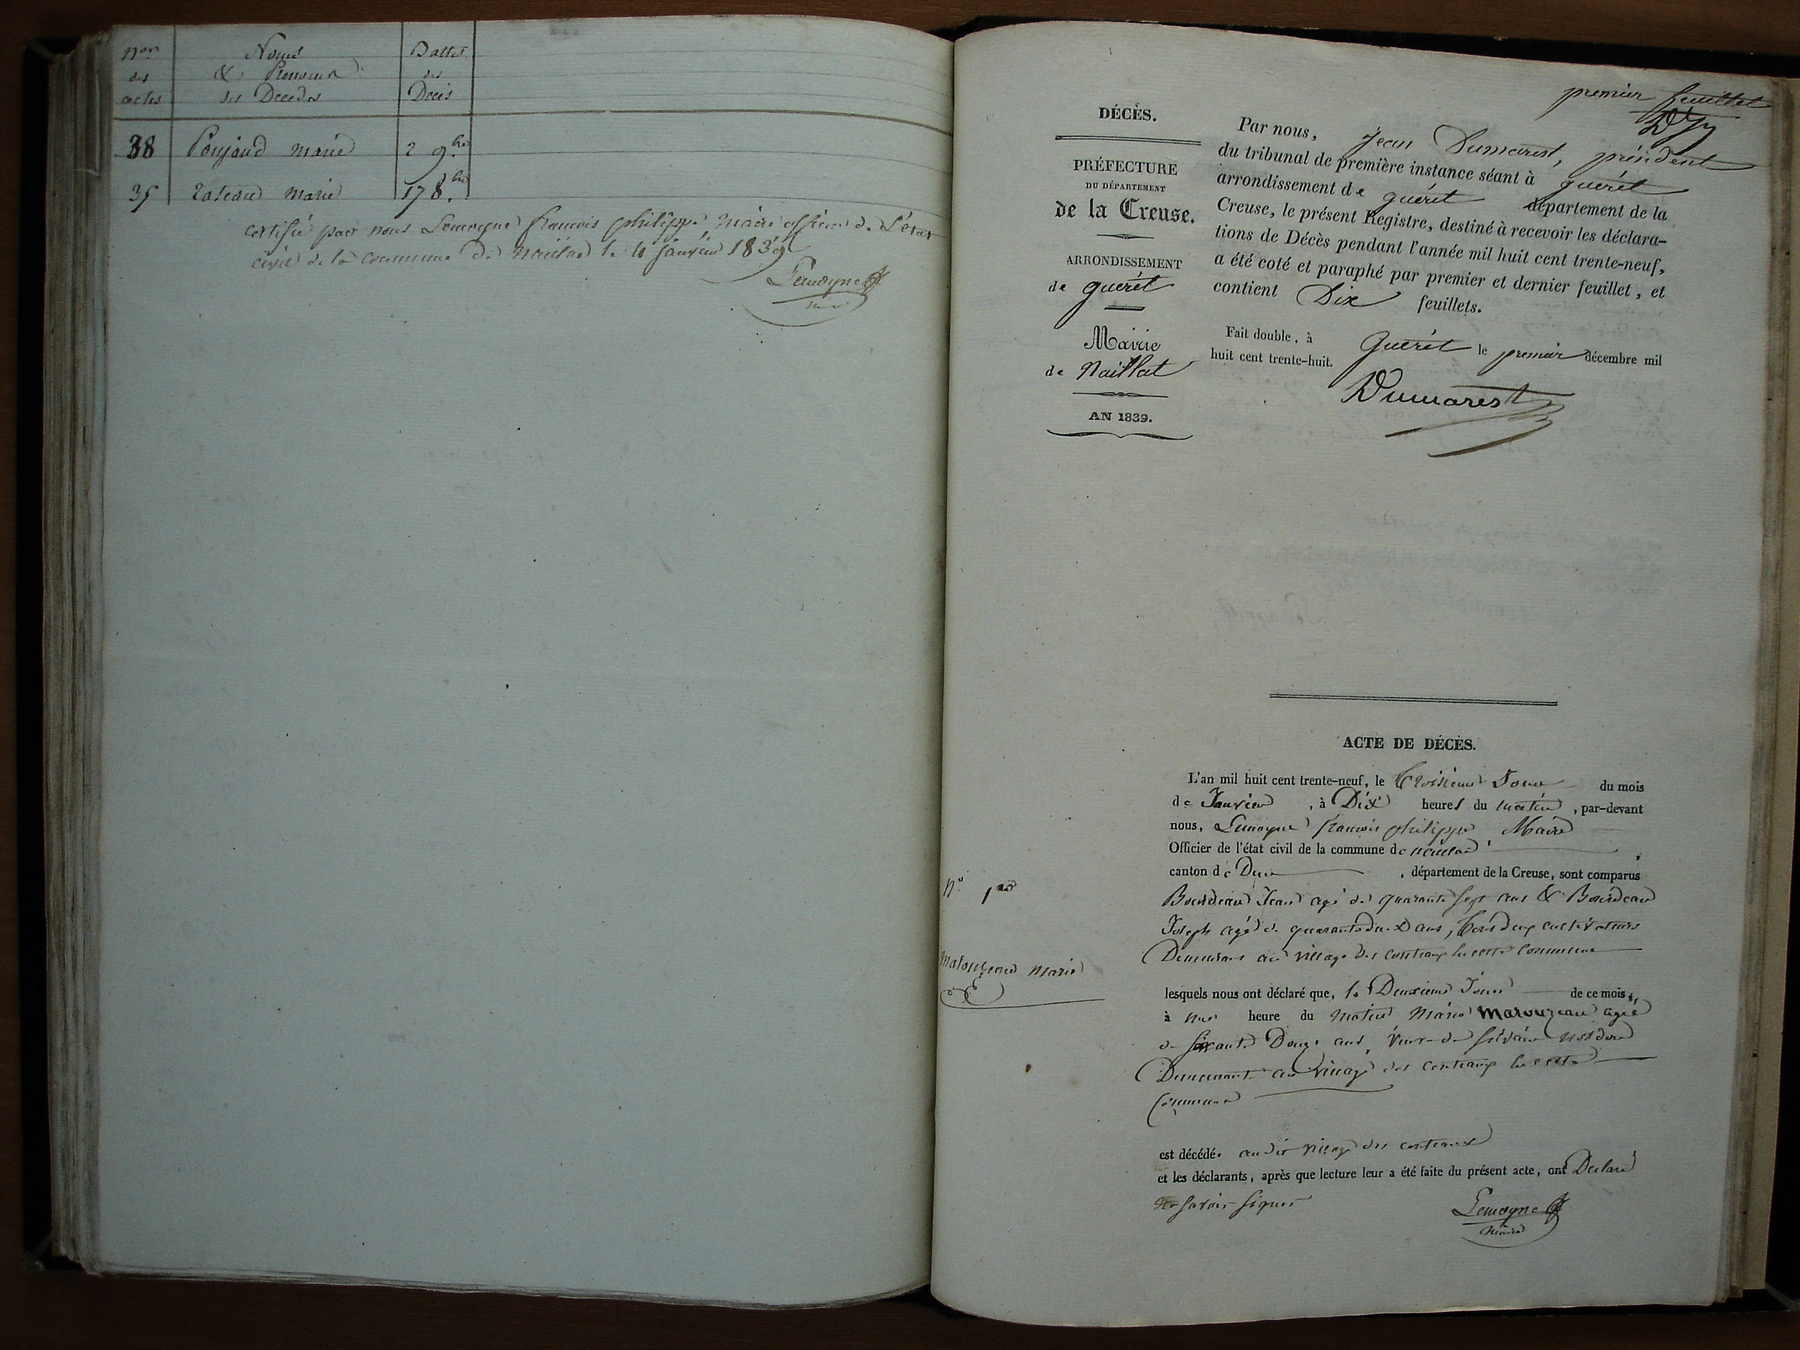 Nos Noms Dattes
des & Prenoms des
actes des Decedes Decès
38 Poujaud marie 2 9.bre
39 rateau marie 17 8.bre
certifié par nous Lemoyne françois philippe, maire officier de L'état
civil de la commune de naillat le 10 janvier 1839
Lemoyne
maire
premier feuillet
DÉCÈS.
PRÉFECTURE
DU DÉPARTEMENT
de la Creuse.
ARRONDISSEMENT
de guéret
Mairie
de Naillat
AN 1839.
Par nous, Jean Dumarest, président
du tribunal de première instance séant à guéret
arrondissement de guéret département de la
Creuse, le présent Registre, destiné à recevoir les déclara-
tions de Décès pendant l'année mil huit cent trente-neuf,
a été coté et paraphé par premier et dernier feuillet, et
contient Dix feuillets.
Fait double, à Guéret le premier décembre mil
huit cent trente-huit.
Dumarest
ACTE DE DÉCÈS.
L'an mil huit cent trente-neuf, le troisieme Jour du mois
de Janvier, à Dix heures du matin, par-devant
nous, Lemoyne françois philippe Maire
Officier de l'état civil de la commune de naillat
canton de Dun, département de la Creuse, sont comparus
Bourdeau Jean agé de quarante sept ans & Bourdeau
Joseph agé de quarante deux ans, tous deux cultivateurs
Demeurant au village des conteaux susdite commune
N.o 1er
marouzeau marie
lesquels nous ont déclaré que, le Deuxieme Jour de ce mois,
à une heure du matin Marie Marouzeau agée
de soixante Douze ans, veuve de silvain
Demeurante au village des conteaux
commune
est décédée audit village des conteaux
et les déclarants, après que lecture leur a été faite du présent acte, ont Declaré
ne savoir signer
Lemoyne
maire